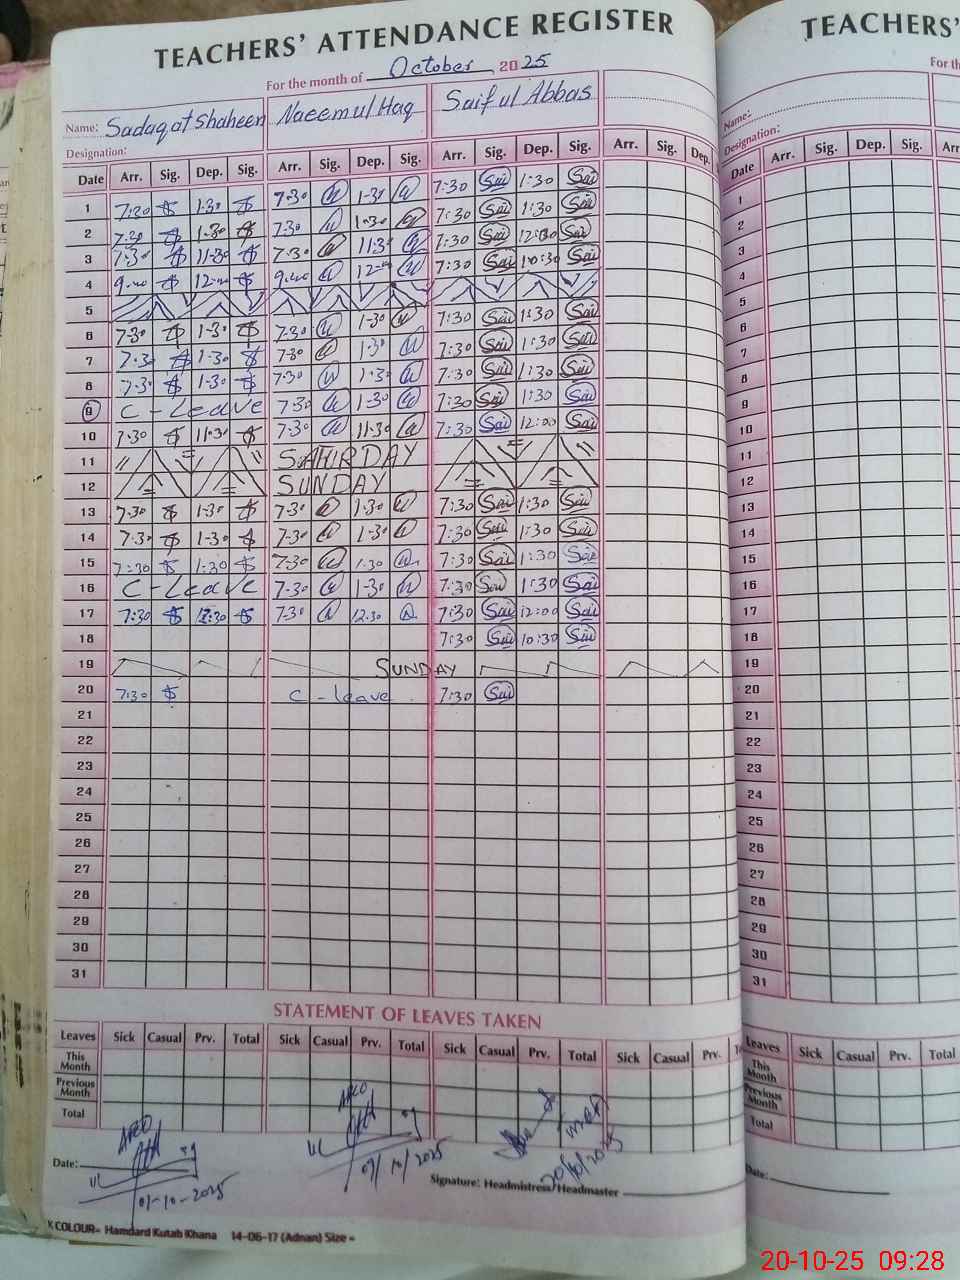 TEACHERS' ATTENDANCE REGISTER
For the month of October, 2025
Name: Sadaqat Shaheen Naeem ul Haq Saif ul Abbas
Designation:
Date Arr. Sig. Dep. Sig. Arr. Sig. Dep. Sig. Arr. Sig. Dep. Sig. Arr. Sig. Dep.
7:30 Sai 1:30 Sai
1 7:30 1-30 7-30 1-30 7:30 Sai 1:30 Sai
2 7-30 1-30 7-30 1-30 7:30 Sai 12:00 Sai
3 7-30 11-30 7-30 11-30 7:30 Sai 10:30 Sai
4 9-00 12-00 9-00 12-00
5 7:30 Sai 1:30 Sai
6 7-30 1-30 7-30 1-30 7:30 Sai 1:30 Sai
7 7-30 1-30 7-30 1-30 7:30 Sai 1:30 Sai
8 7-30 1-30 7-30 1-30 7:30 Sai 1:30 Sai
9 C - Leave 7-30 1-30 7:30 Sai 12:00 Sai
10 7-30 11-30 7-30 11-30
11 SATURDAY
12 SUNDAY
13 7-30 1-30 7-30 1-30 7:30 Sai 1:30 Sai
14 7-30 1-30 7-30 1-30 7:30 Sai 1:30 Sai
15 7:30 1:30 7-30 1-30 7:30 Sai 1:30 Sai
16 C - Leave 7-30 1-30 7:30 Sai 1:30 Sai
17 7:30 12:30 7-30 12-30 7:30 Sai 12:00 Sai
18 7:30 Sai 10:30 Sai
19 SUNDAY
20 7:30 C - leave 7:30 Sai
21
22
23
24
25
26
27
28
29
30
31
STATEMENT OF LEAVES TAKEN
Leaves Sick Casual Prv. Total Sick Casual Prv. Total Sick Casual Prv. Total Sick Casual Prv.
This Month
Previous Month
Total
Date: 01-10-2025 07/10/2025 20/10/2025
Signature: Headmistress/Headmaster
COLOUR= Hamdard Kutab Khana 14-06-17 (Adnan) Size =
TEACHERS'
For th
Name:
Designation:
Date Arr. Sig. Dep. Sig.
1
2
3
4
5
6
7
8
9
10
11
12
13
14
15
16
17
18
19
20
21
22
23
24
25
26
27
28
29
30
31
Leaves Sick Casual Prv. Total
This Month
Previous Month
Total
Date:
20-10-25 09:28